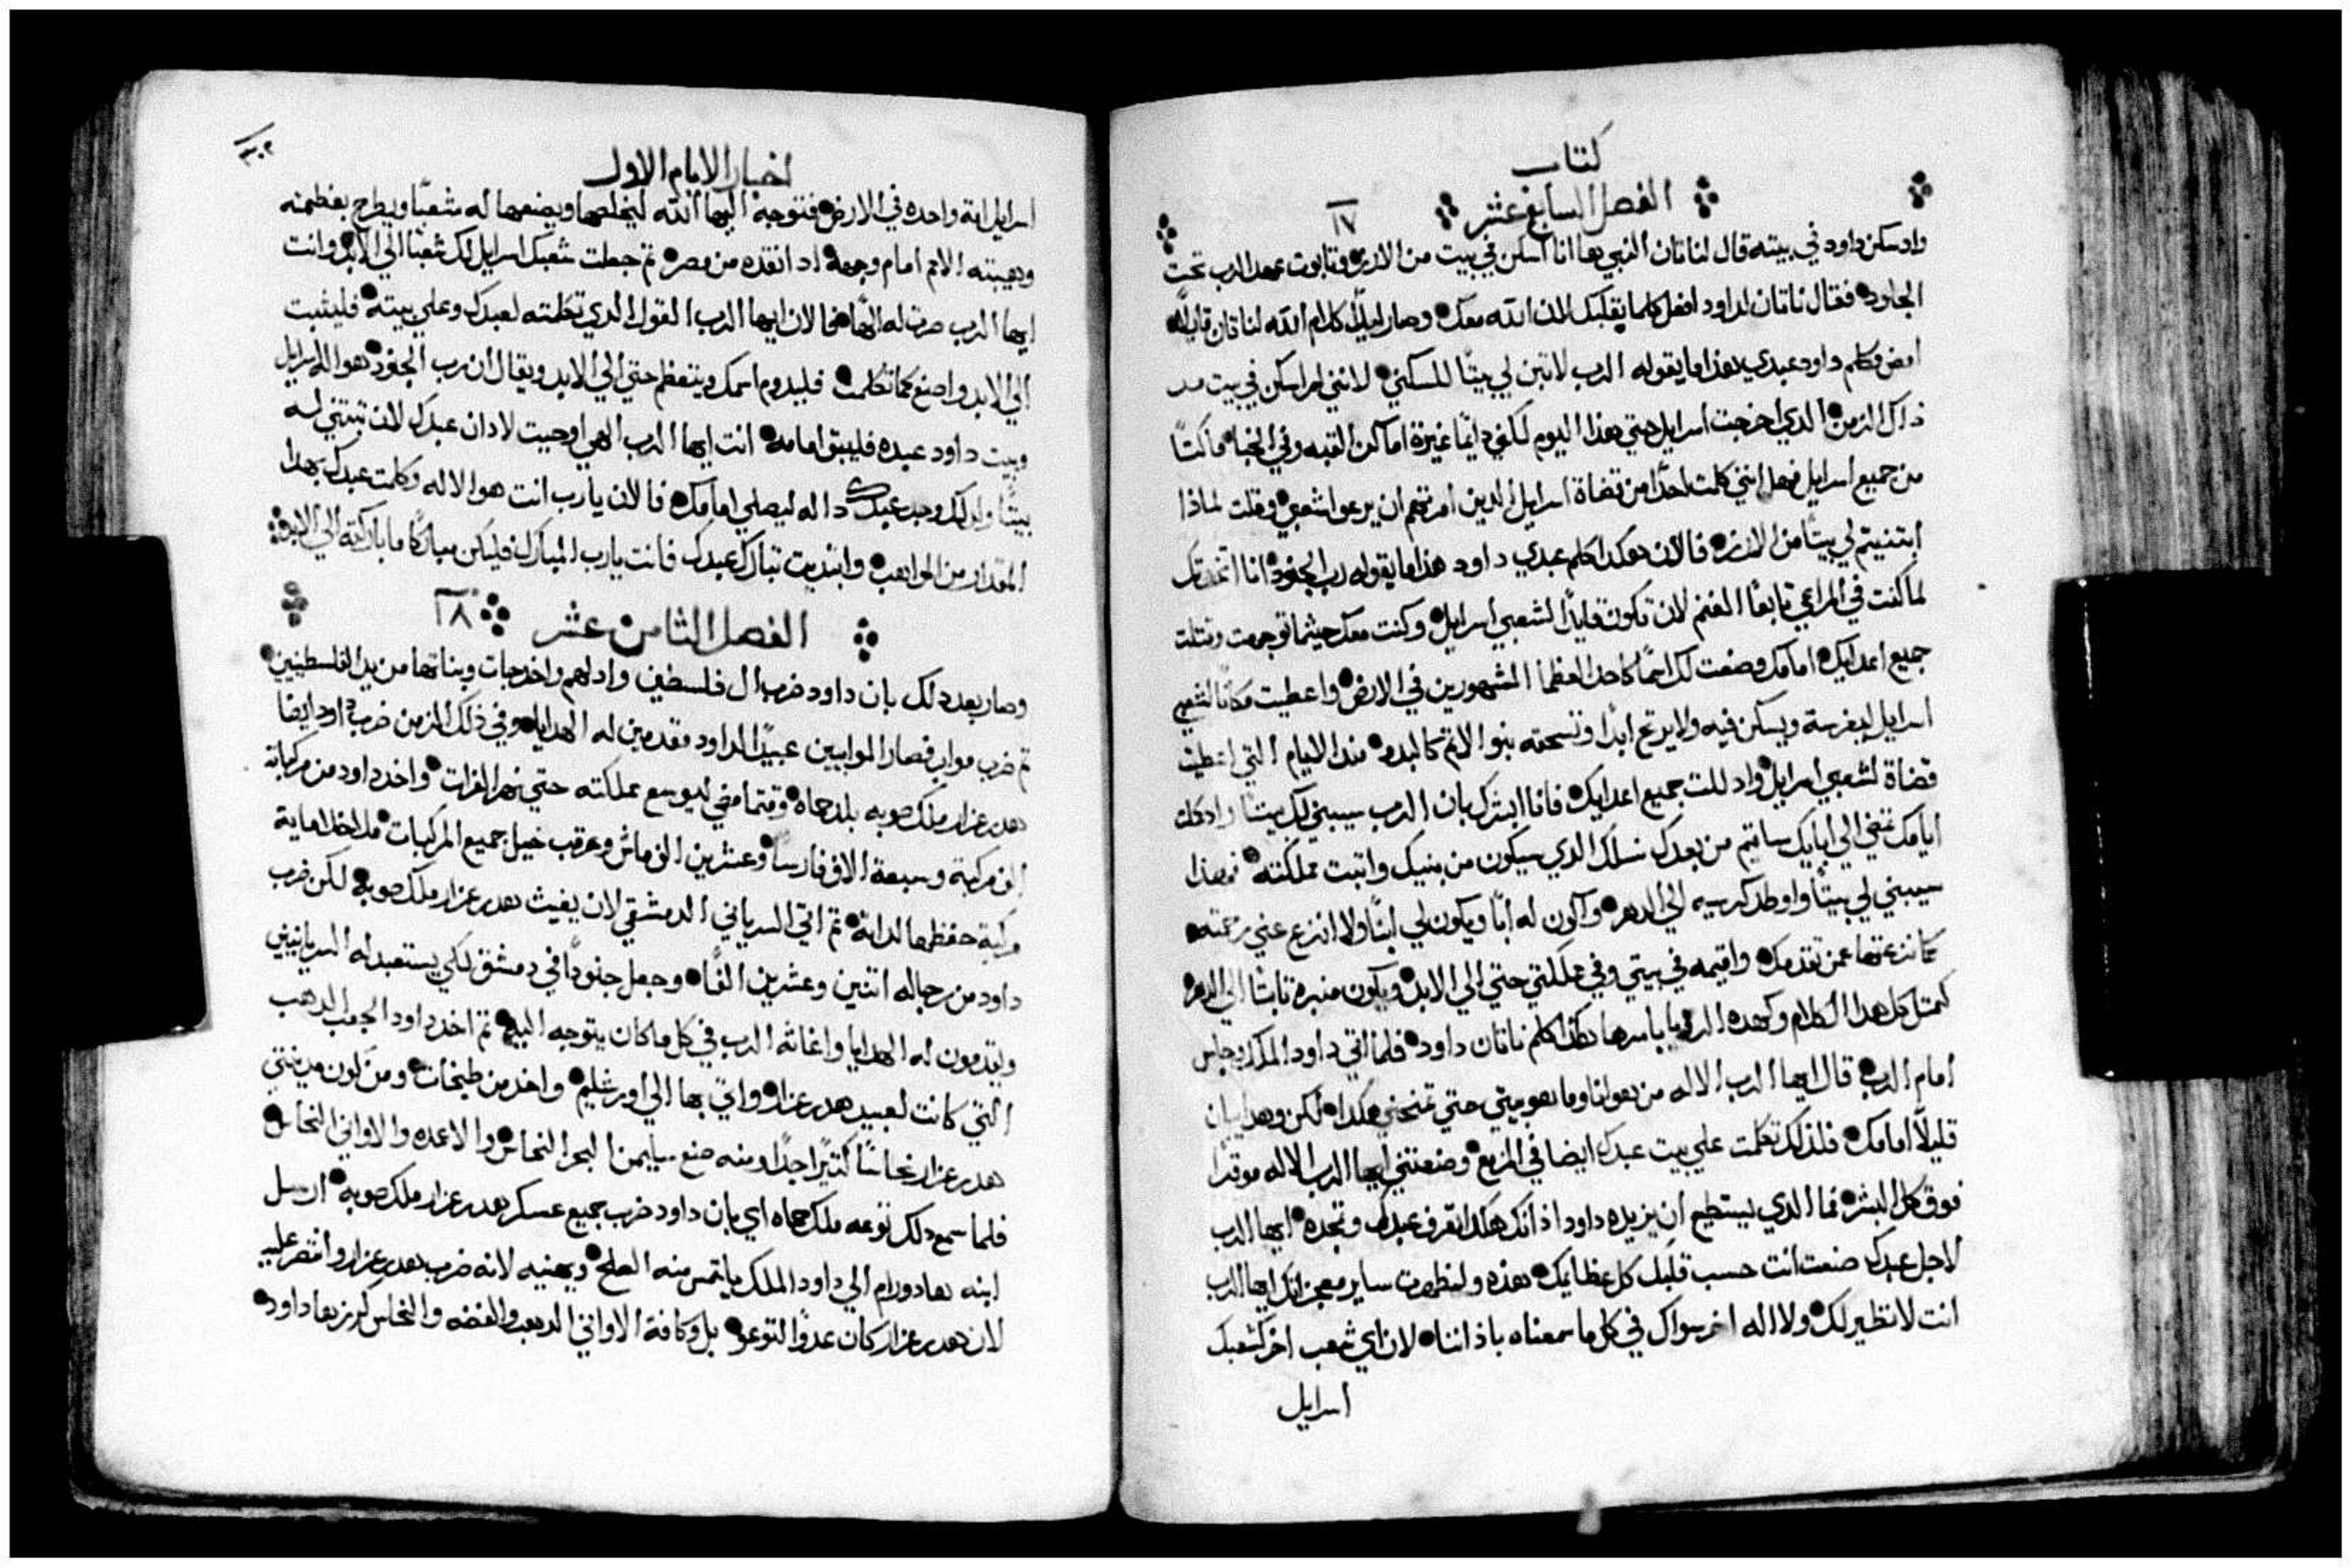 كتاب
الفصل السابع عشر ١٧
واد سكن داود في بيته قال لناتان النبي ها انا اسكن في بيت من الارز وتابوت عهد الرب تحت
الجلود فقال ناتان لداود افعل كلما بقلبك لان الله معك وصار ليلًا كلام الله لناتان قايلًا
امض وكلم داود عبدي هذا ما يقوله الرب لا تبن لي بيتًا للسكني لانني لم اسكن في بيت مند
ذاك الزمن الدي اخرجت اسرايل حتي هذا اليوم لكنني دايمًا غيرة اماكن القبه وفي الخبا ماكثًا
من جميع اسرايل فهل انني كلمت احدًا من قضاة اسرايل الدين امرتهم ان يرعوا شعبي وقلت لماذا
ابتنيتم لي بيتًا من الارز فالان هكدا كلم عبدي داود هذا ما يقوله رب الجنود انا اتخدتك
لما كنت في المراعي تابعًا الغنم لان تكون قايدًا لشعبي اسرايل وكنت معك حيثما توجهت وقتلت
جميع اعدايك امامك وصنعت لك اسمًا كاحد العظما المشهورين في الارض واعطيت مكانًا لشعبي
اسرايل ليغرسة ويسكن فيه ولا يرتج ابدًا وتسحقه بنوا الاتم كالبدو مند الايام التي اعطيت
قضاة لشعبي اسرايل واذللت جميع اعدايك فانا ابشرك بان الرب سيبني لك بيتًا واد كملت
ايامك تمضي الي ابايك ساقيم من بعدك نسلك الدي سيكون من بنيك واتبت مملكته فهذا
سيبني لي بيتًا واوطد كرسيه الي الدهر واكون له ابًا ويكون لي ابنًا ولا انزع عني رحمته
كما نزعتها عمن تقدمك واقيمه في بيتي وفي مملكتي حتي الي الابد ويكون منبره ثابتًا الي الدهر
كمثل كل هدا الكلام وكهده الرويا باسرها هكدا كلم ناتان داود فلما اتي داود الملك وجلس
امام الرب قال ايها الرب الاله من هو انا وما هو بيتي حتي تمنحني هكدا لكن وهدا بيان
قليلًا امامك فلذلك تكلمت علي بيت عبدك ايضا في المزمع وصنعتني ايها الرب الاله موقرًا
فوق كل البشر فما الدي يستطيع ان يزيده داود اذ انك هكدا تعرف عبدك وتمجده ايها الرب
لاجل عبدك صنعت انت حسب قلبك كل عظايمك هذه ولتظهرت ساير معجزاتك ايها الرب
انت لا نظير لك ولا اله اخر سواك في كل ما سمعناه باذاننا لان اي شعب اخر كشعبك
اسرايل
اخبار الايام الاول
اسرايل امة واحده في الارض فتوجه اليها الله ليخلصها ويضعها له شعبًا ويطرح بعظمته
وهيبته الامم امام وجهه اد انقذه من مصر ثم جعلت شعبك اسرايل لك شعبًا الي الابد وانت
ايها الرب صرت له الهًا فالان ايها الرب القول الدي تكلمته لعبدك وعلي بيته فليثبت
الي الابد واصنع كما تكلمت فليدوم اسمك ويتعظم حتي الي الابد ويقال ان رب الجنود هو اله اسرايل
وبيت داود عبده فليبق امامه انت ايها الرب الهي اوحيت لادان عبدك لان تبتني له
بيتًا ولدلك وجد عبدك داله ليصلي امامك فالان يا رب انت هو الاله وكلمت عبدك بهدا
المقدار من المواهب وابتديت تبارك عبدك فانت يا رب المبارك فليكن مباركًا ما باركته الي الابد
الفصل الثامن عشر ١٨
وصار بعد دلك بان داود ضرب ال فلسطين وادلهم واخد جات وبناتها من يد الفلسطينيين
ثم ضرب مواب فصار الموابيين عبيدًا لداود مقدمين له الهدايا وفي ذلك الزمن ضرب داود ايضا
هدرعزار ملك صوبه بلد حماه وقتما مضي ليوسع مملكته حتي نهر الفرات واخد داود من مركباته
الف مركبة وسبعة الاف فارسًا وعشرين الف ماش وعرقب خيل جميع المركبات ما خلا ماية
مركبة حفظها لداته ثم اتي السرياني الدمشقي لان يغيث هدرعزار ملك صوبه لكن ضرب
داود من رجاله اتنين وعشرين الفًا وجعل جنودًا في دمشق لكي يستعبد له السريانيين
ويقدمون له الهدايا واغاثه الرب في كل ما كان يتوجه اليه ثم اخد داود الجعب الدهب
التي كانت لعبيد هدرعزار واتي بها الي اورشليم واخد من طبحات ومن كون مدينتي
هدرعزار نحاسًا كثيرًا جدًا ومنه صنع سليمن البحر النحاس والاعمده والاواني النحاس
فلما سمع دلك توعه ملك حماه اي بان داود ضرب جميع عسكر هدرعزار ملك صوبه ارسل
ابنه هادورام الي داود الملك يلتمس منه الصلح ويهنيه لانه ضرب هدرعزار وانتصر عليه
لان هدرعزار كان عدوًا لتوعو بل وكافة الاواني الدهب والفضه والنحاس كرزها داود